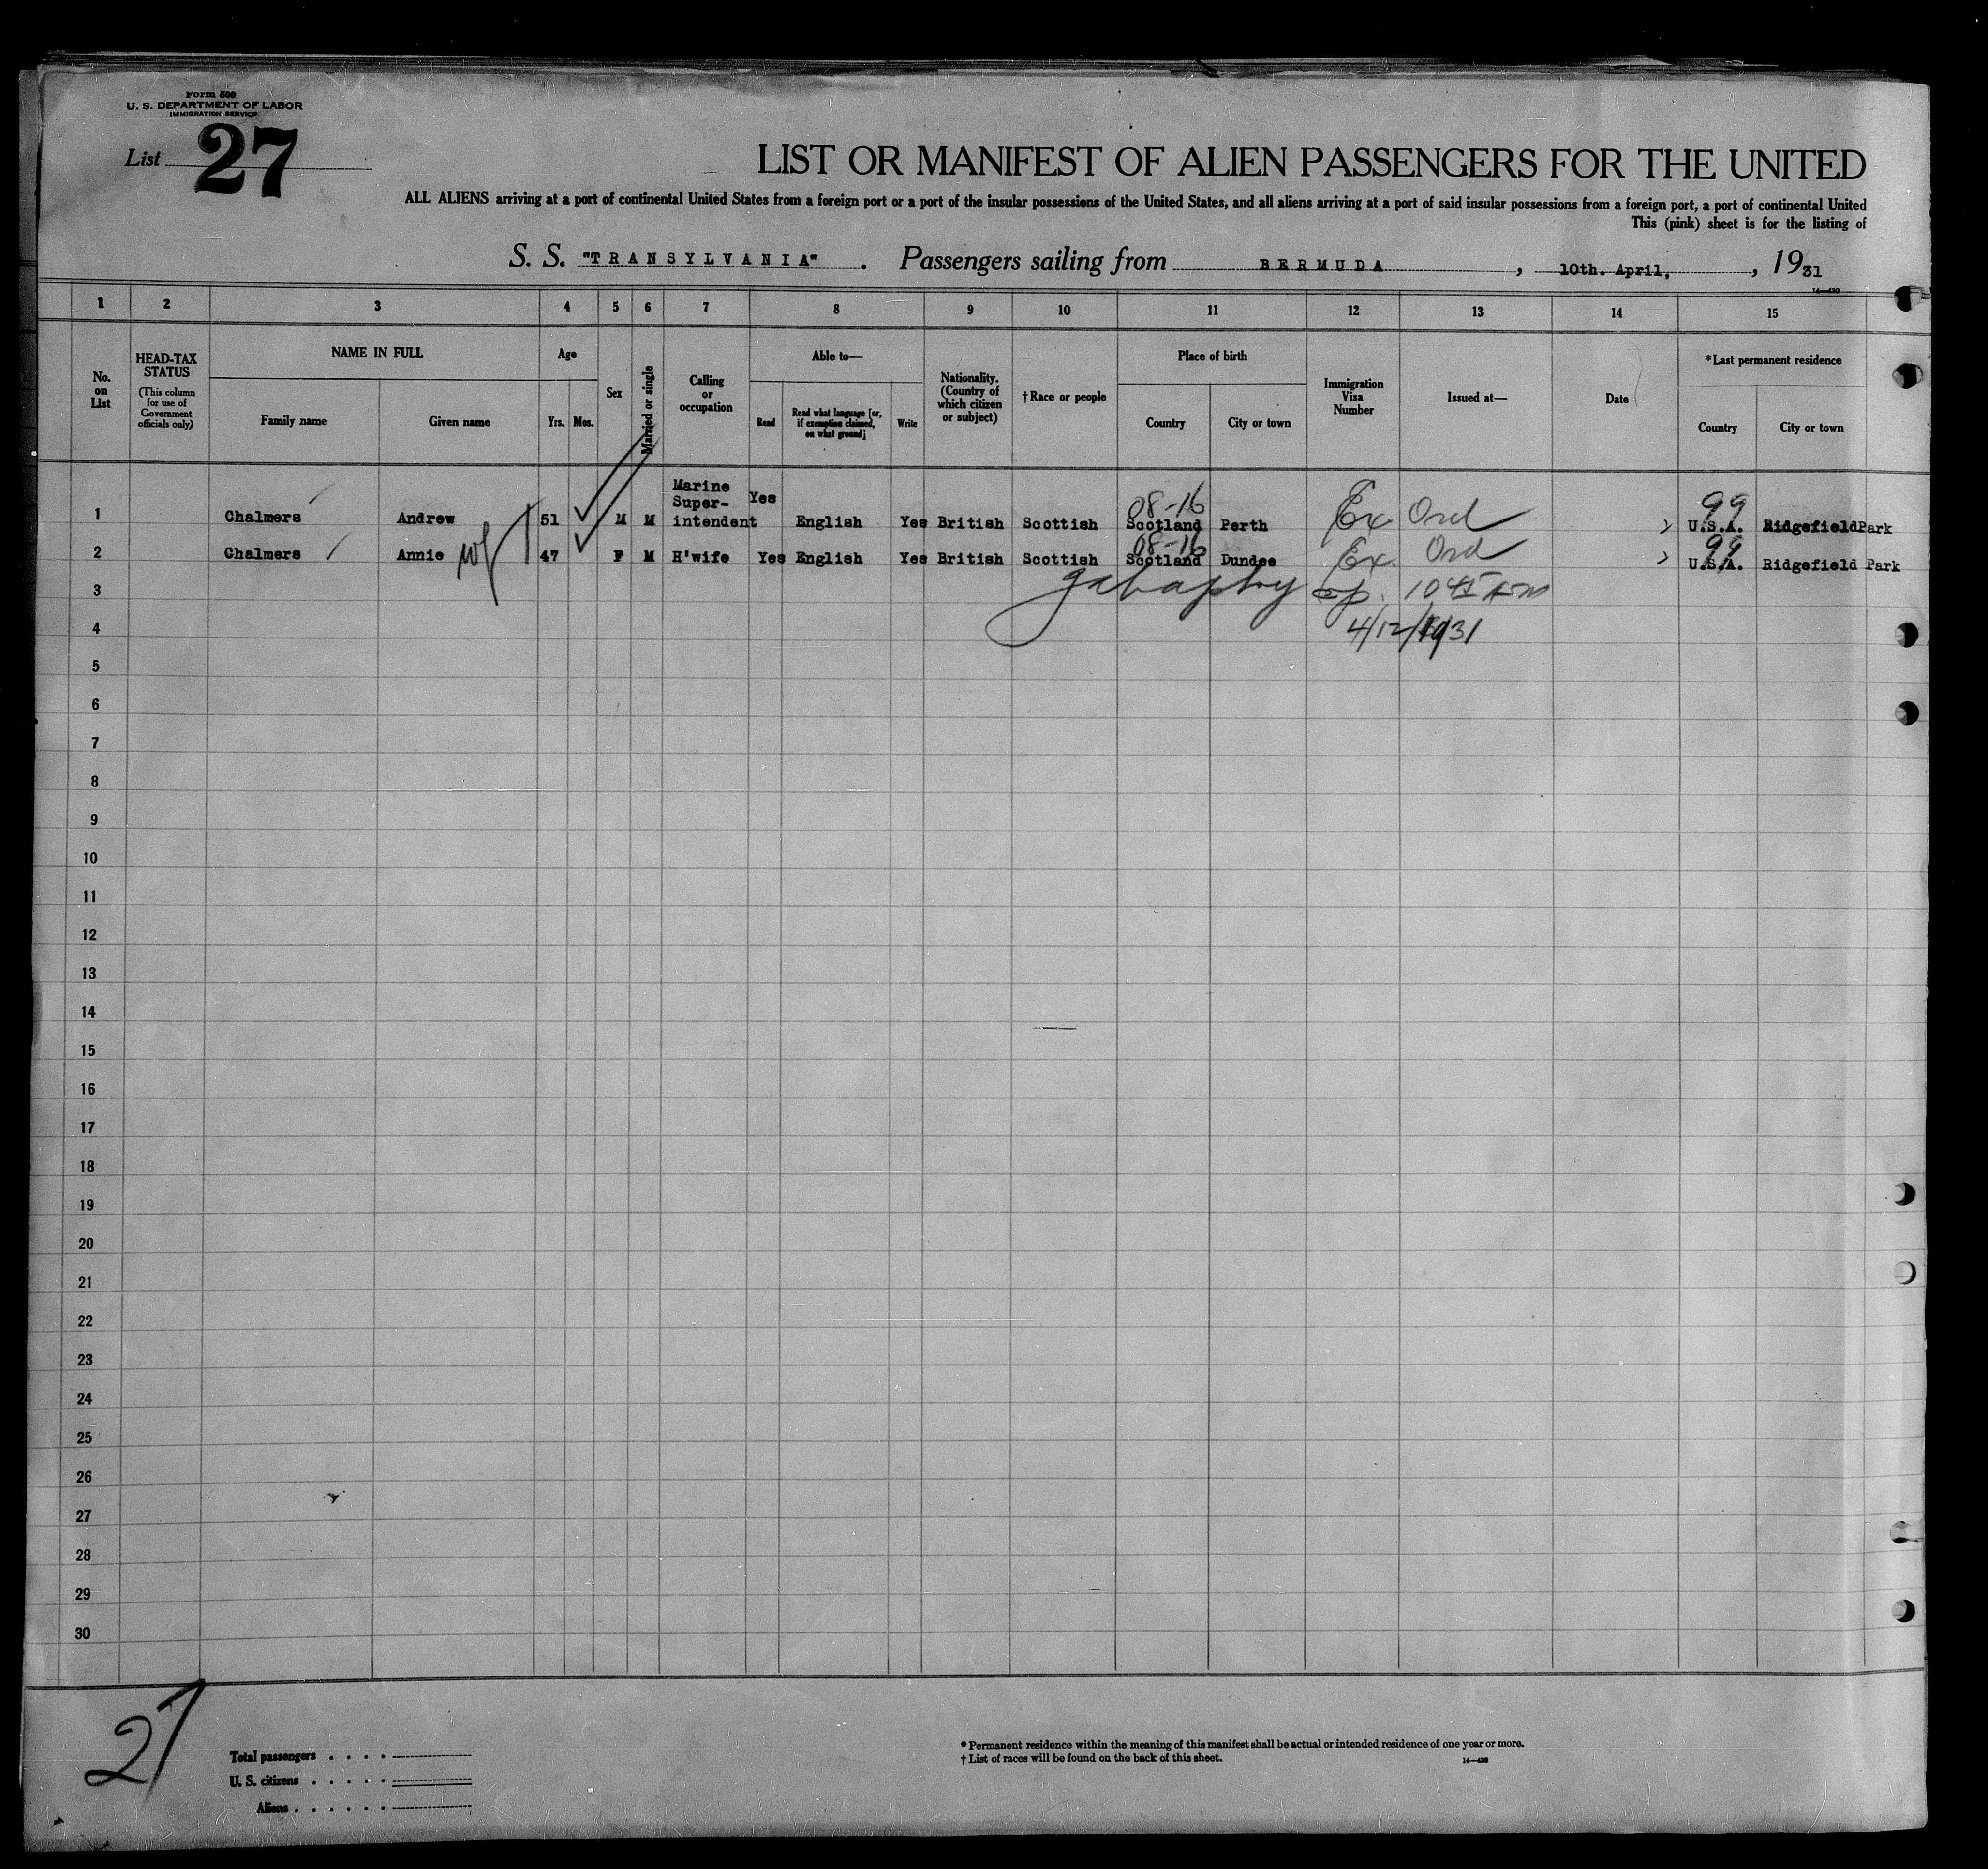 Form 500
U. S. DEPARTMENT OF LABOR
IMMIGRATION SERVICE
List 27
LIST OR MANIFEST OF ALIEN PASSENGERS FOR THE UNITED
ALL ALIENS arriving at a port of continental United States from a foreign port or a port of the insular possessions of the United States, and all aliens arriving at a port of said insular possessions from a foreign port, a port of continental United
This (pink) sheet is for the listing of
S. S. "TRANSYLVANIA" . Passengers sailing from BERMUDA , 10th. April, , 1931
14—430
1 2 3 4 5 6 7 8 9 10 11 12 13 14 15
No. on List
HEAD-TAX STATUS
(This column for use of Government officials only)
NAME IN FULL
Family name
Given name
Age
Yrs. Mos.
Sex
Married or single
Calling or occupation
Able to—
Read
Read what language [or, if exemption claimed, on what ground]
Write
Nationality. (Country of which citizen or subject)
†Race or people
Place of birth
Country
City or town
Immigration Visa Number
Issued at—
Date
*Last permanent residence
Country
City or town
08-16 99
1 Chalmers Andrew 51 M M Marine Super-intendent Yes English Yes British Scottish Scotland Perth Ex Ord U.S.A. Ridgefield Park
08-16 99
2 Chalmers Annie wf 47 F M H'wife Yes English Yes British Scottish Scotland Dundee Ex. Ord U.S.A. Ridgefield Park
3 1045 AM
4 4/12/1931
5
6
7
8
9
10
11
12
13
14
15
16
17
18
19
20
21
22
23
24
25
26
27
28
29
30
27
Total passengers . . . .
U. S. citizens . . . . .
Aliens . . . . . .
* Permanent residence within the meaning of this manifest shall be actual or intended residence of one year or more.
† List of races will be found on the back of this sheet.
14—430